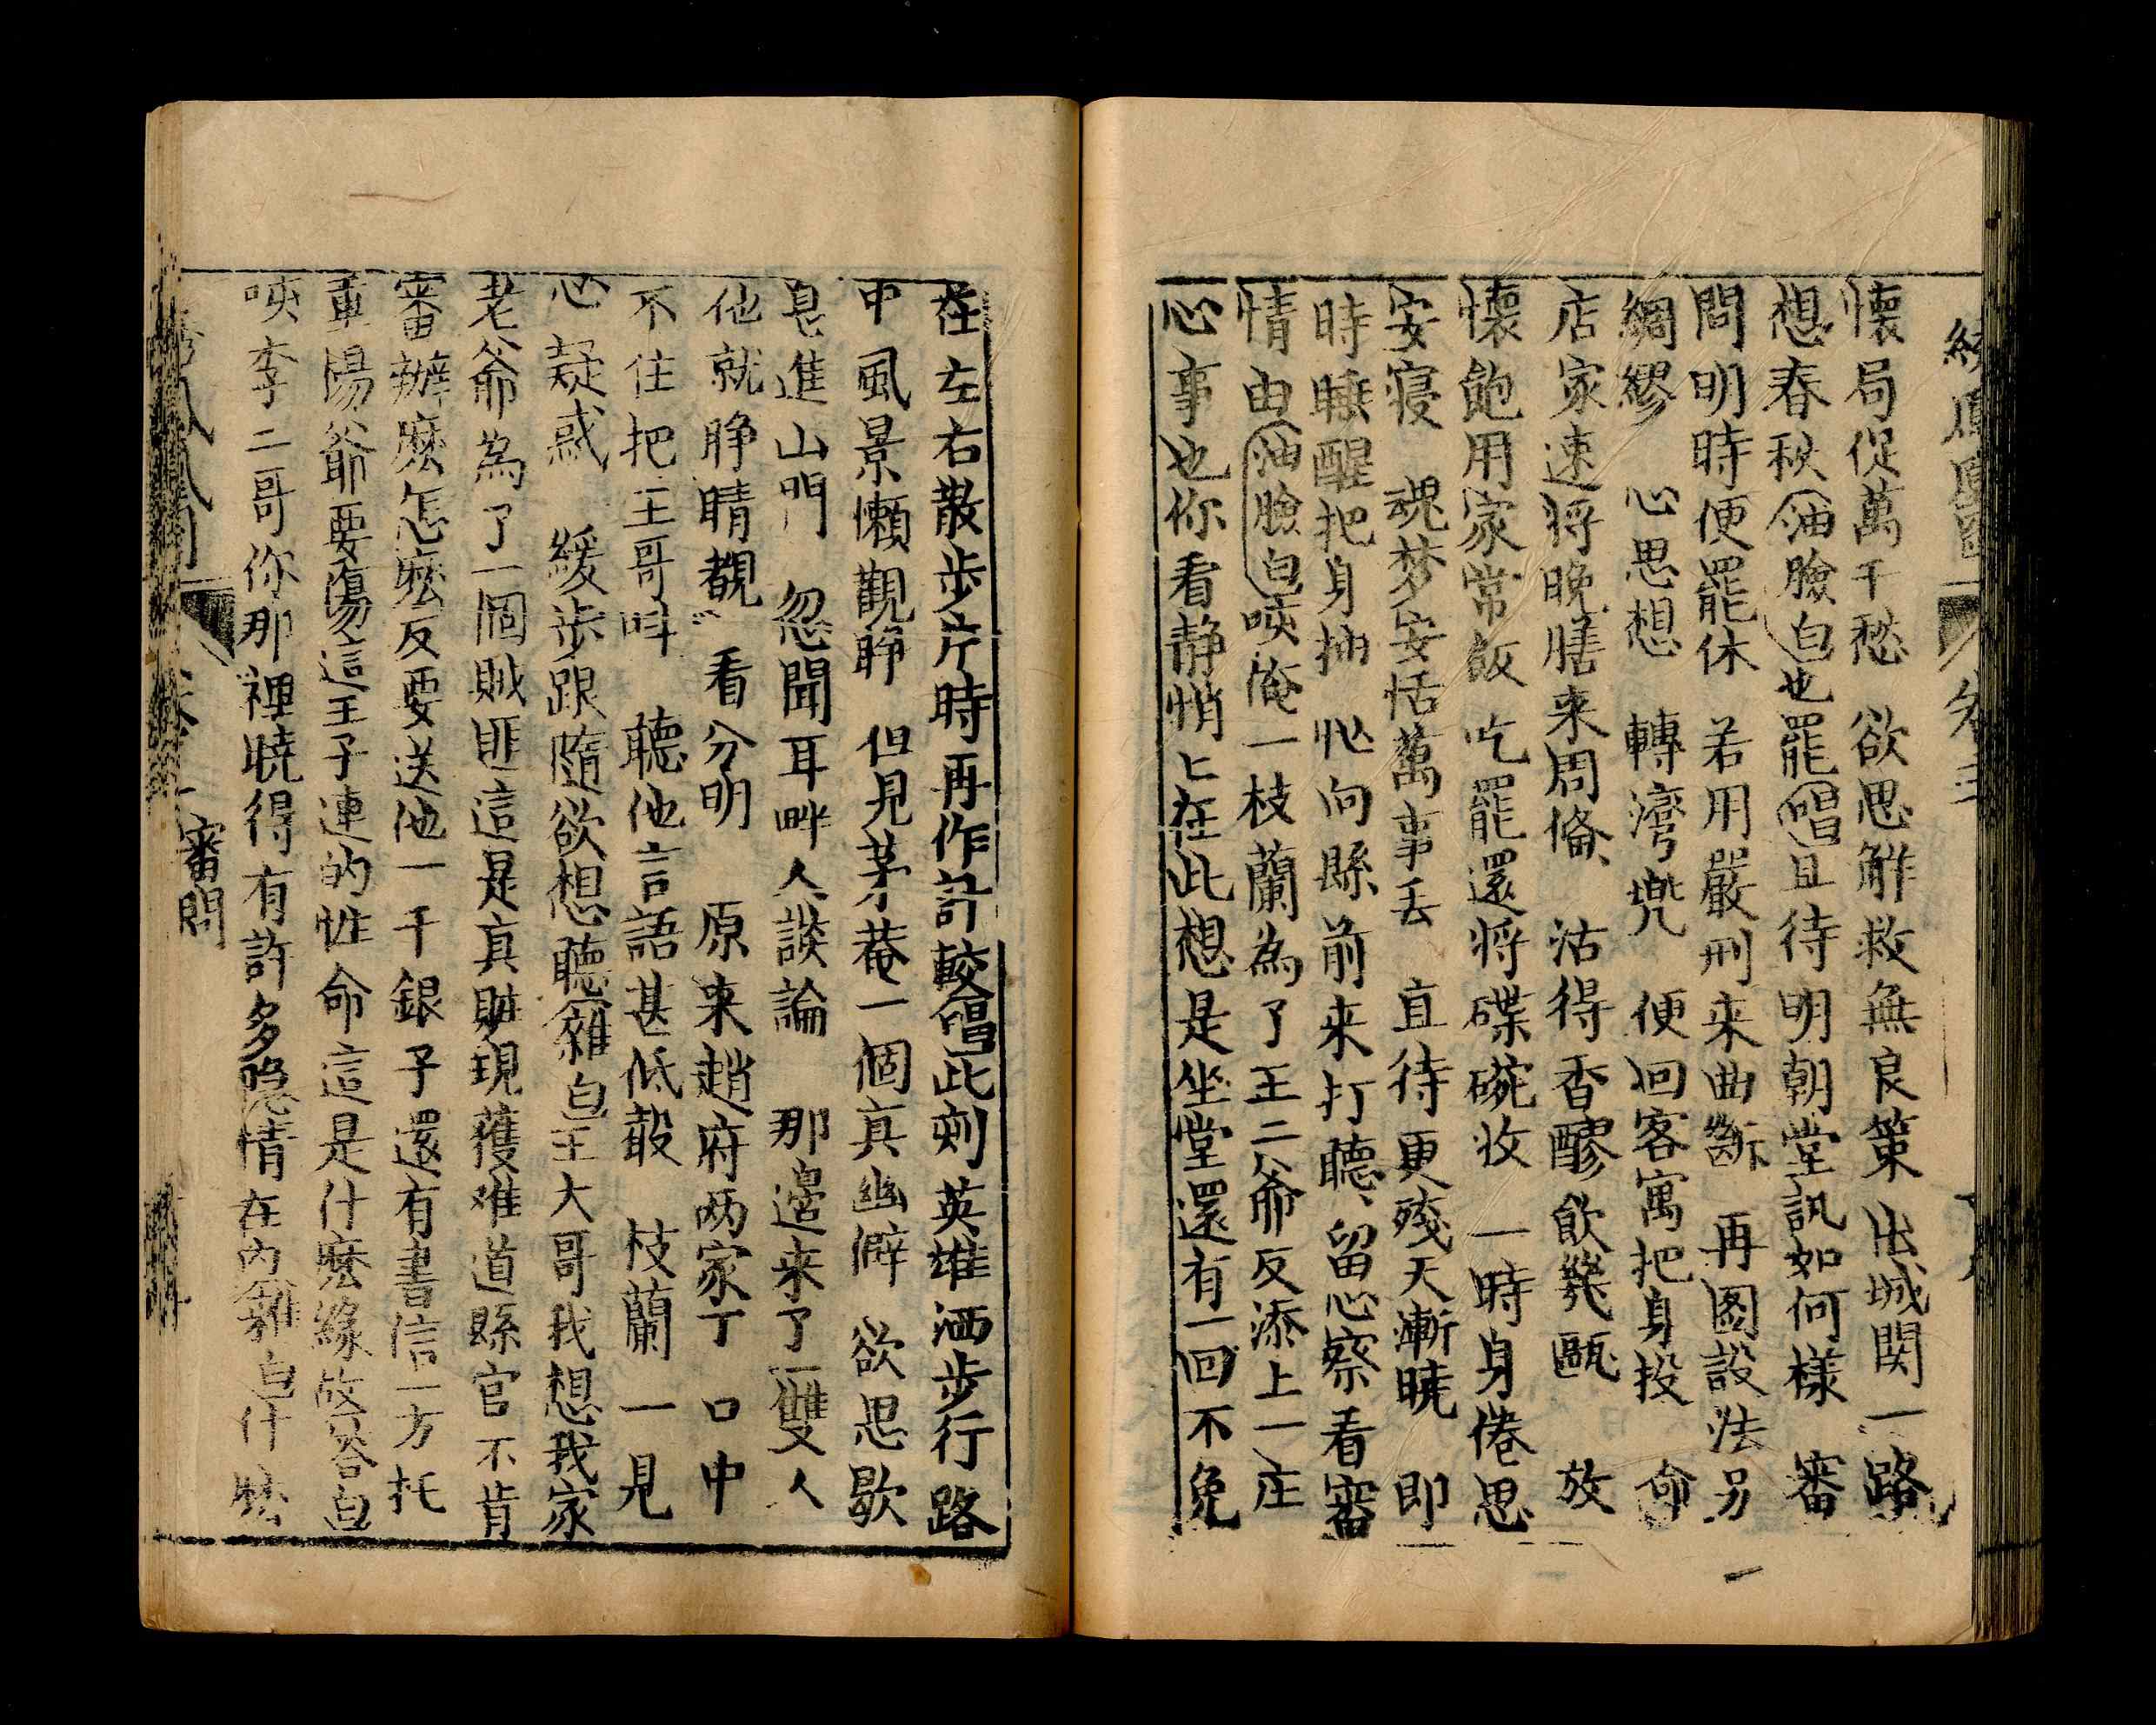 懷局促萬千愁 欲思觧救無良策 出城関一路
想春秋油臉白也罷唱且待明朝堂訊如何樣 審
問明時便罷休 若用嚴刑来曲斷 再圖設法另
綢繆 心思想 轉灣兠 便回客寓把身投 命
店家速将晚膳来周俻 沽得香醪飲幾甌 放
懷飽用家常飯 吃罷還将碟碗收 一時身倦思
安寝 魂梦安恬萬事丢 直待更殘天漸曉 即
時睡醒把身抽 忙向縣前来打聽 留心察看審
情由油臉白咦俺一枝蘭為了王二爺反添上一庄
心事也你看静悄〻在此想是坐堂還有一回不免
在左右散步片時再作計較唱此刻英雄洒步行 路
中風景懶觀睁 但見茅菴一個真幽僻 欲思歇
息進山門 忽聞耳畔人談論 那邉来了一雙人
他就睁睛觀〻看分明 原来趙府两家丁 口中
不住把王哥呌 聽他言語甚低聲 枝蘭一見
心疑惑 緩步跟隨欲想聽雜白王大哥我想我家
老爺為了一個賊匪這是真賍現獲难道縣官不肯
審辦麽怎麽反要送他一千銀子還有書信一方托
重楊爺要傷這王子連的性命這是什麽緣故答白
咦李二哥你那裡曉得有許多隐情在內雜白什麽
卷 審問